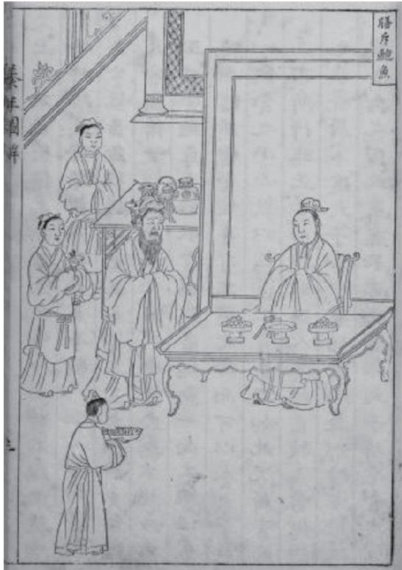 膳斥鮑魚
養正圖解